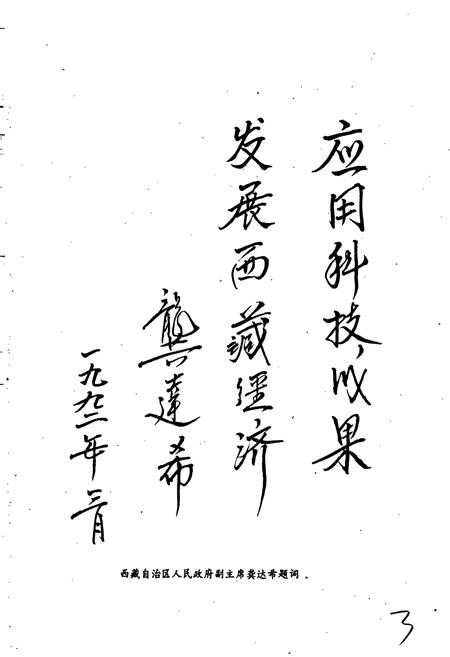 应用科技成果
发展西藏经济
龔達希
一九九二年三月
西藏自治区人民政府副主席龚达希题词
3